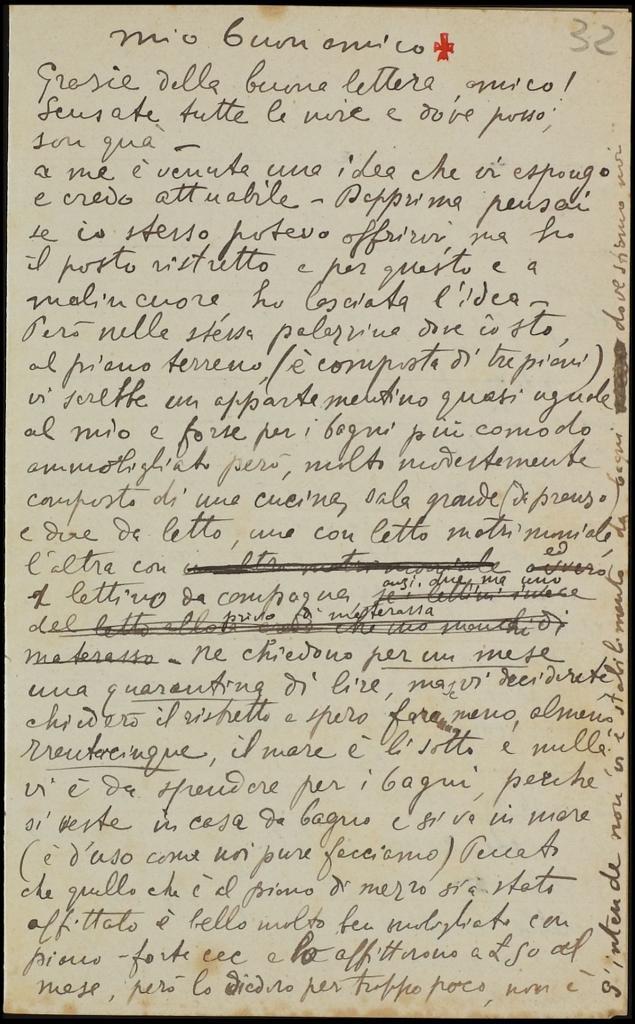 32
mio buon amico
Grazie della buona lettera, amico!
Scusate tutte le noie e dove posso,
son quà —
a me è venuta una idea che vi espongo
e credo attuabile — Dapprima pensai
se io stesso potevo offrirvi, ma ho
il posto ristretto e per questo e a
malincuore ho lasciata l'idea —
Però nella stessa palazzina dove io sto,
al piano terreno, (è composta di tre piani)
vi sarebbe un appartamentino quasi uguale
al mio e forse per i bagni più comodo
ammobigliato però, molto modestamente
composto di una cucina, sala grande (da pranzo
e due da letto, una con letto matrimoniale,
l'altra con un altro matrimoniale ovvero ed
lettino da campagna, anzi, due, ma uno
del letto privo di materassa che uno manchi di
materassa — Ne chiedono per un mese
una quarantina di lire, ma se vi deciderete
chiederò il ristretto e spero meno, almeno
trentacinque, il mare è lì sotto e nulla
vi è da spendere per i bagni, perchè
si veste in casa da bagno e si va in mare
(è d'uso come noi pure facciamo) Peccato
che quello che è al piano di mezzo sia stato
affittato è bello molto ben mobigliato con
piano-forte ecc e lo affittorono a L 50 al
mese, però lo diedero per troppo poco, non è
S'intende non vi è stabilimento da bagni dove stiamo noi